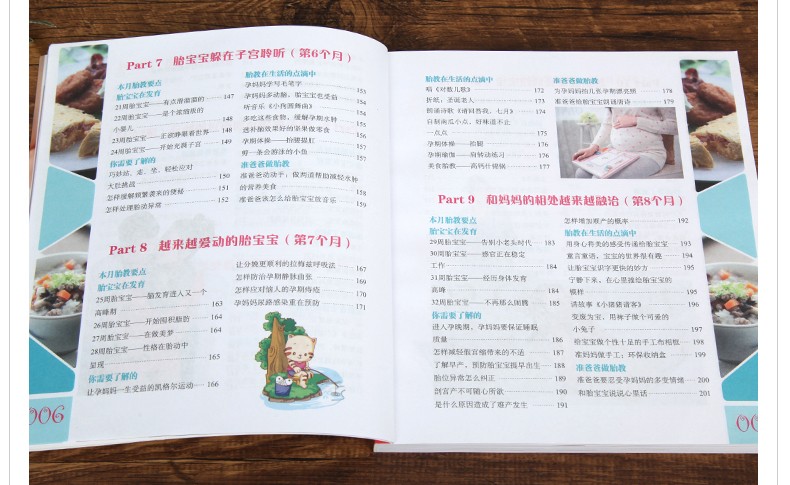 Part 7 胎宝宝躲在子宫聆听（第6个月）
本月胎教要点
胎宝宝在发育
21周胎宝宝——有点滑溜溜的 147
22周胎宝宝——是个浓眉毛的
小婴儿 148
23周胎宝宝——正欲睁眼看世界 148
24周胎宝宝——开始充满子宫 149
你需要了解的
巧妙站、走、坐，轻松应对
大肚挑战 150
怎样缓解频繁袭来的便秘 151
怎样处理胎动异常 152
胎教在生活的点滴中
孕妈妈学写毛笔字 153
孕妈妈多动脑，胎宝宝也受益 154
听音乐《小狗圆舞曲》 154
多吃这些食物，缓解孕期水肿 154
选补脑效果好的坚果做零食 156
孕期体操——抬腿提肛 157
剪一条会游泳的小鱼 157
准爸爸做胎教
准爸爸动动手：做两道帮助减轻水肿
的营养美食 158
准爸爸该怎么给胎宝宝放音乐 159
Part 8 越来越爱动的胎宝宝（第7个月）
本月胎教要点
胎宝宝在发育
25周胎宝宝——脑发育进入又一个
高峰期 163
26周胎宝宝——开始囤积脂肪 164
27周胎宝宝——在做美梦 164
28周胎宝宝——性格在胎动中
显现 165
你需要了解的
让孕妈妈一生受益的凯格尔运动 166
让分娩更顺利的拉梅兹呼吸法 167
怎样防治孕期静脉曲张 169
怎样应对恼人的孕期痔疮 170
孕妈妈尿路感染重在预防 171
006
胎教在生活的点滴中
唱《对数儿歌》 172
折纸：圣诞老人 173
朗诵诗歌《请回答我，七月》 174
自制南瓜小点，好味道不止
一点点 175
孕期体操——抬腿 176
孕期瑜伽——肩转动练习 176
美食胎教——高钙什锦锅 177
准爸爸做胎教
为孕妈妈的几在孕期照亮照 178
准爸爸给胎宝宝朗诵唐诗 179
Part 9 和妈妈的相处越来越融洽（第8个月）
本月胎教要点
胎宝宝在发育
29周胎宝宝——告别小老头时代 183
30周胎宝宝——感官正在稳定
工作 184
31周胎宝宝——经历身体发育
高峰 184
32周胎宝宝——不再那么闹腾 185
你需要了解的
进入孕晚期，孕妈妈要保证睡眠
质量 186
怎样减轻假宫缩带来的不适 187
了解早产，预防胎宝宝提早出生 188
胎位异常怎么纠正 189
剖宫产不可随心所欲 190
是什么原因造成了难产发生 191
怎样增加顺产的概率 192
胎教在生活的点滴中
用身心有美的感受传递给胎宝宝 193
童言童语，宝宝的世界很有趣 194
让胎宝宝识字更快的妙方 195
宁静下来，在心里描绘宝宝的
模样 195
讲故事《小猪猪请客》 196
变废为宝，用袜子做个可爱的
小兔子 197
给宝宝做个性十足的手工布相框 198
准妈妈做手工：环保收纳盒 199
准爸爸做胎教
准爸爸要忍受孕妈妈的多变情绪 200
和胎宝宝说说心里话 201